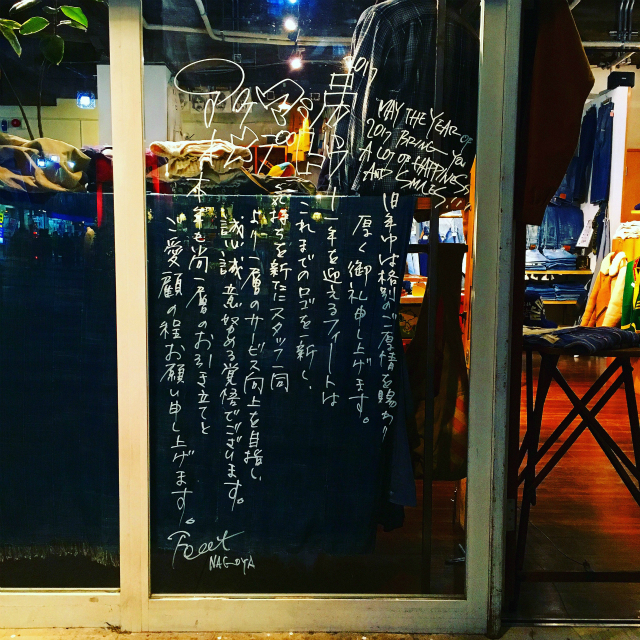 MAY THE YEAR OF
2017 BRING YOU
A LOT OF HAPPINESS
AND SMILES!!
旧年中は格別のご厚情を賜わり
厚く御礼申し上げます。
十一年を迎えるフィートは
これまでのロゴを一新し、
気持ちを新たにスタッフ一同
より一層のサービス向上を目指し
誠心誠意努める覚悟でございます。
本年も尚一層のお引き立てと
ご愛顧の程お願い申し上げます。
Feeet
NAGOYA